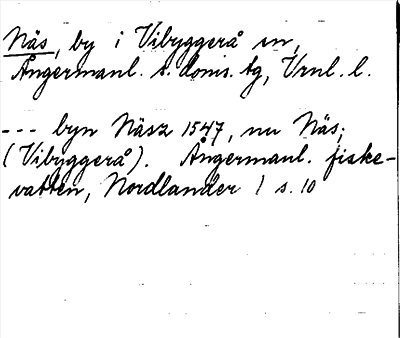 Näs, by i Vibyggerå sn,
Ångermanl. s. doms. tg, Vrnl. l.
--- byn Näsz 1547, nu Näs;
(Vibyggerå). Ångermanl. fiske-
vatten, Nordlander 1 s. 10